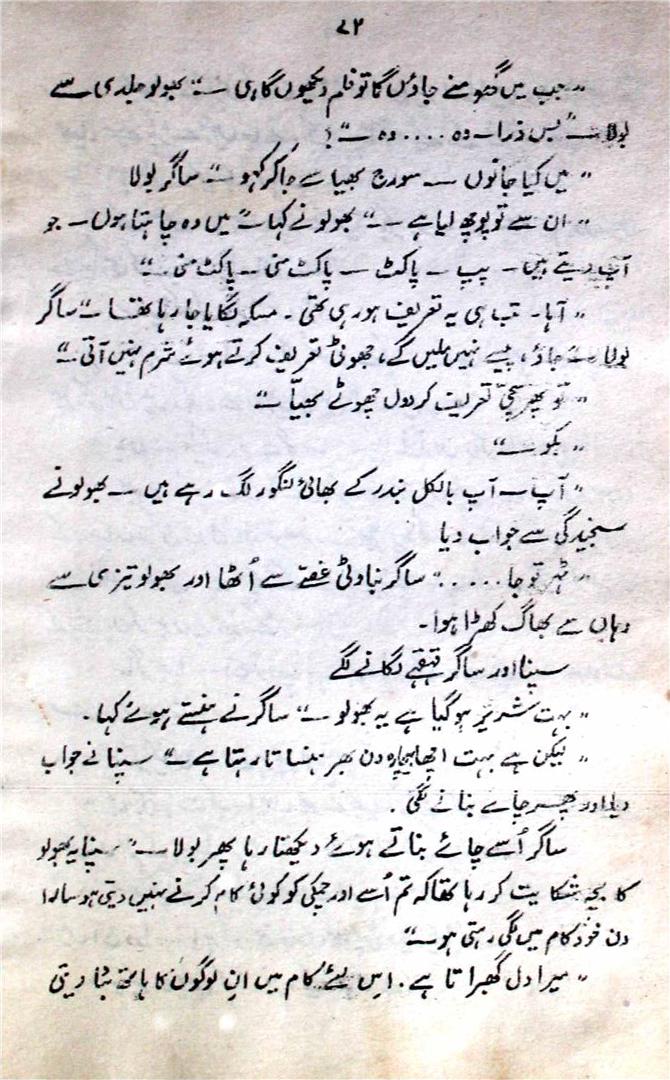 ۷۲
”جب میں گھومنے جاؤں گا تو فلم دیکھوں گا ہی —“ بھولو جلدی سے
بولا —” بس ذرا — وہ .... وہ —“؟
”میں کیا جانوں — سورج بھیا سے جا کر کہو —“ ساگر بولا
”ان سے تو پوچھ لیا ہے —“ بھولو نے کہا —” میں وہ چاہتا ہوں — جو
آپ دیتے ہیں — پپ — پاکٹ — پاکٹ منی — پاکٹ منی —“
”آہا — تب ہی یہ تعریف ہو رہی تھی۔ مسکہ لگایا جا رہا تھا —“ ساگر
بولا —” جاؤ، پیسے نہیں ملیں گے، جھوٹی تعریف کرتے ہوئے شرم نہیں آتی —“
”تو پھر سچی تعریف کردوں چھوٹے بھیا —“
”بکو —“
”آپ — آپ بالکل بندر کے بھائی لنگور لگ رہے ہیں — بھولو نے
سنجیدگی سے جواب دیا
”ٹہر تو جا .....“ ساگر بناوٹی غصے سے اُٹھا اور بھولو تیزی سے
وہاں سے بھاگ کھڑا ہوا۔
سپنا اور ساگر قہقہے لگانے لگے
”بہت شریر ہو گیا ہے یہ بھولو —“ ساگر نے ہنستے ہوئے کہا۔
”لیکن ہے بہت اچھا بیچارہ دن بھر ہنساتا رہتا ہے —“ سپنا نے جواب
دیا اور پھر چائے بنانے لگی۔
ساگر اُسے چائے بناتے ہوئے دیکھتا رہا پھر بولا —” سپنا یہ بھولو
کا بچہ شکایت کر رہا تھا کہ تم اُسے اور چمکی کو کوئی کام کرنے نہیں دیتی ہو سارا
دن خود کام میں لگی رہتی ہو —“
”میرا دل گھبراتا ہے۔ اس لئے کام میں ان لوگوں کا ہاتھ بٹا دیتی